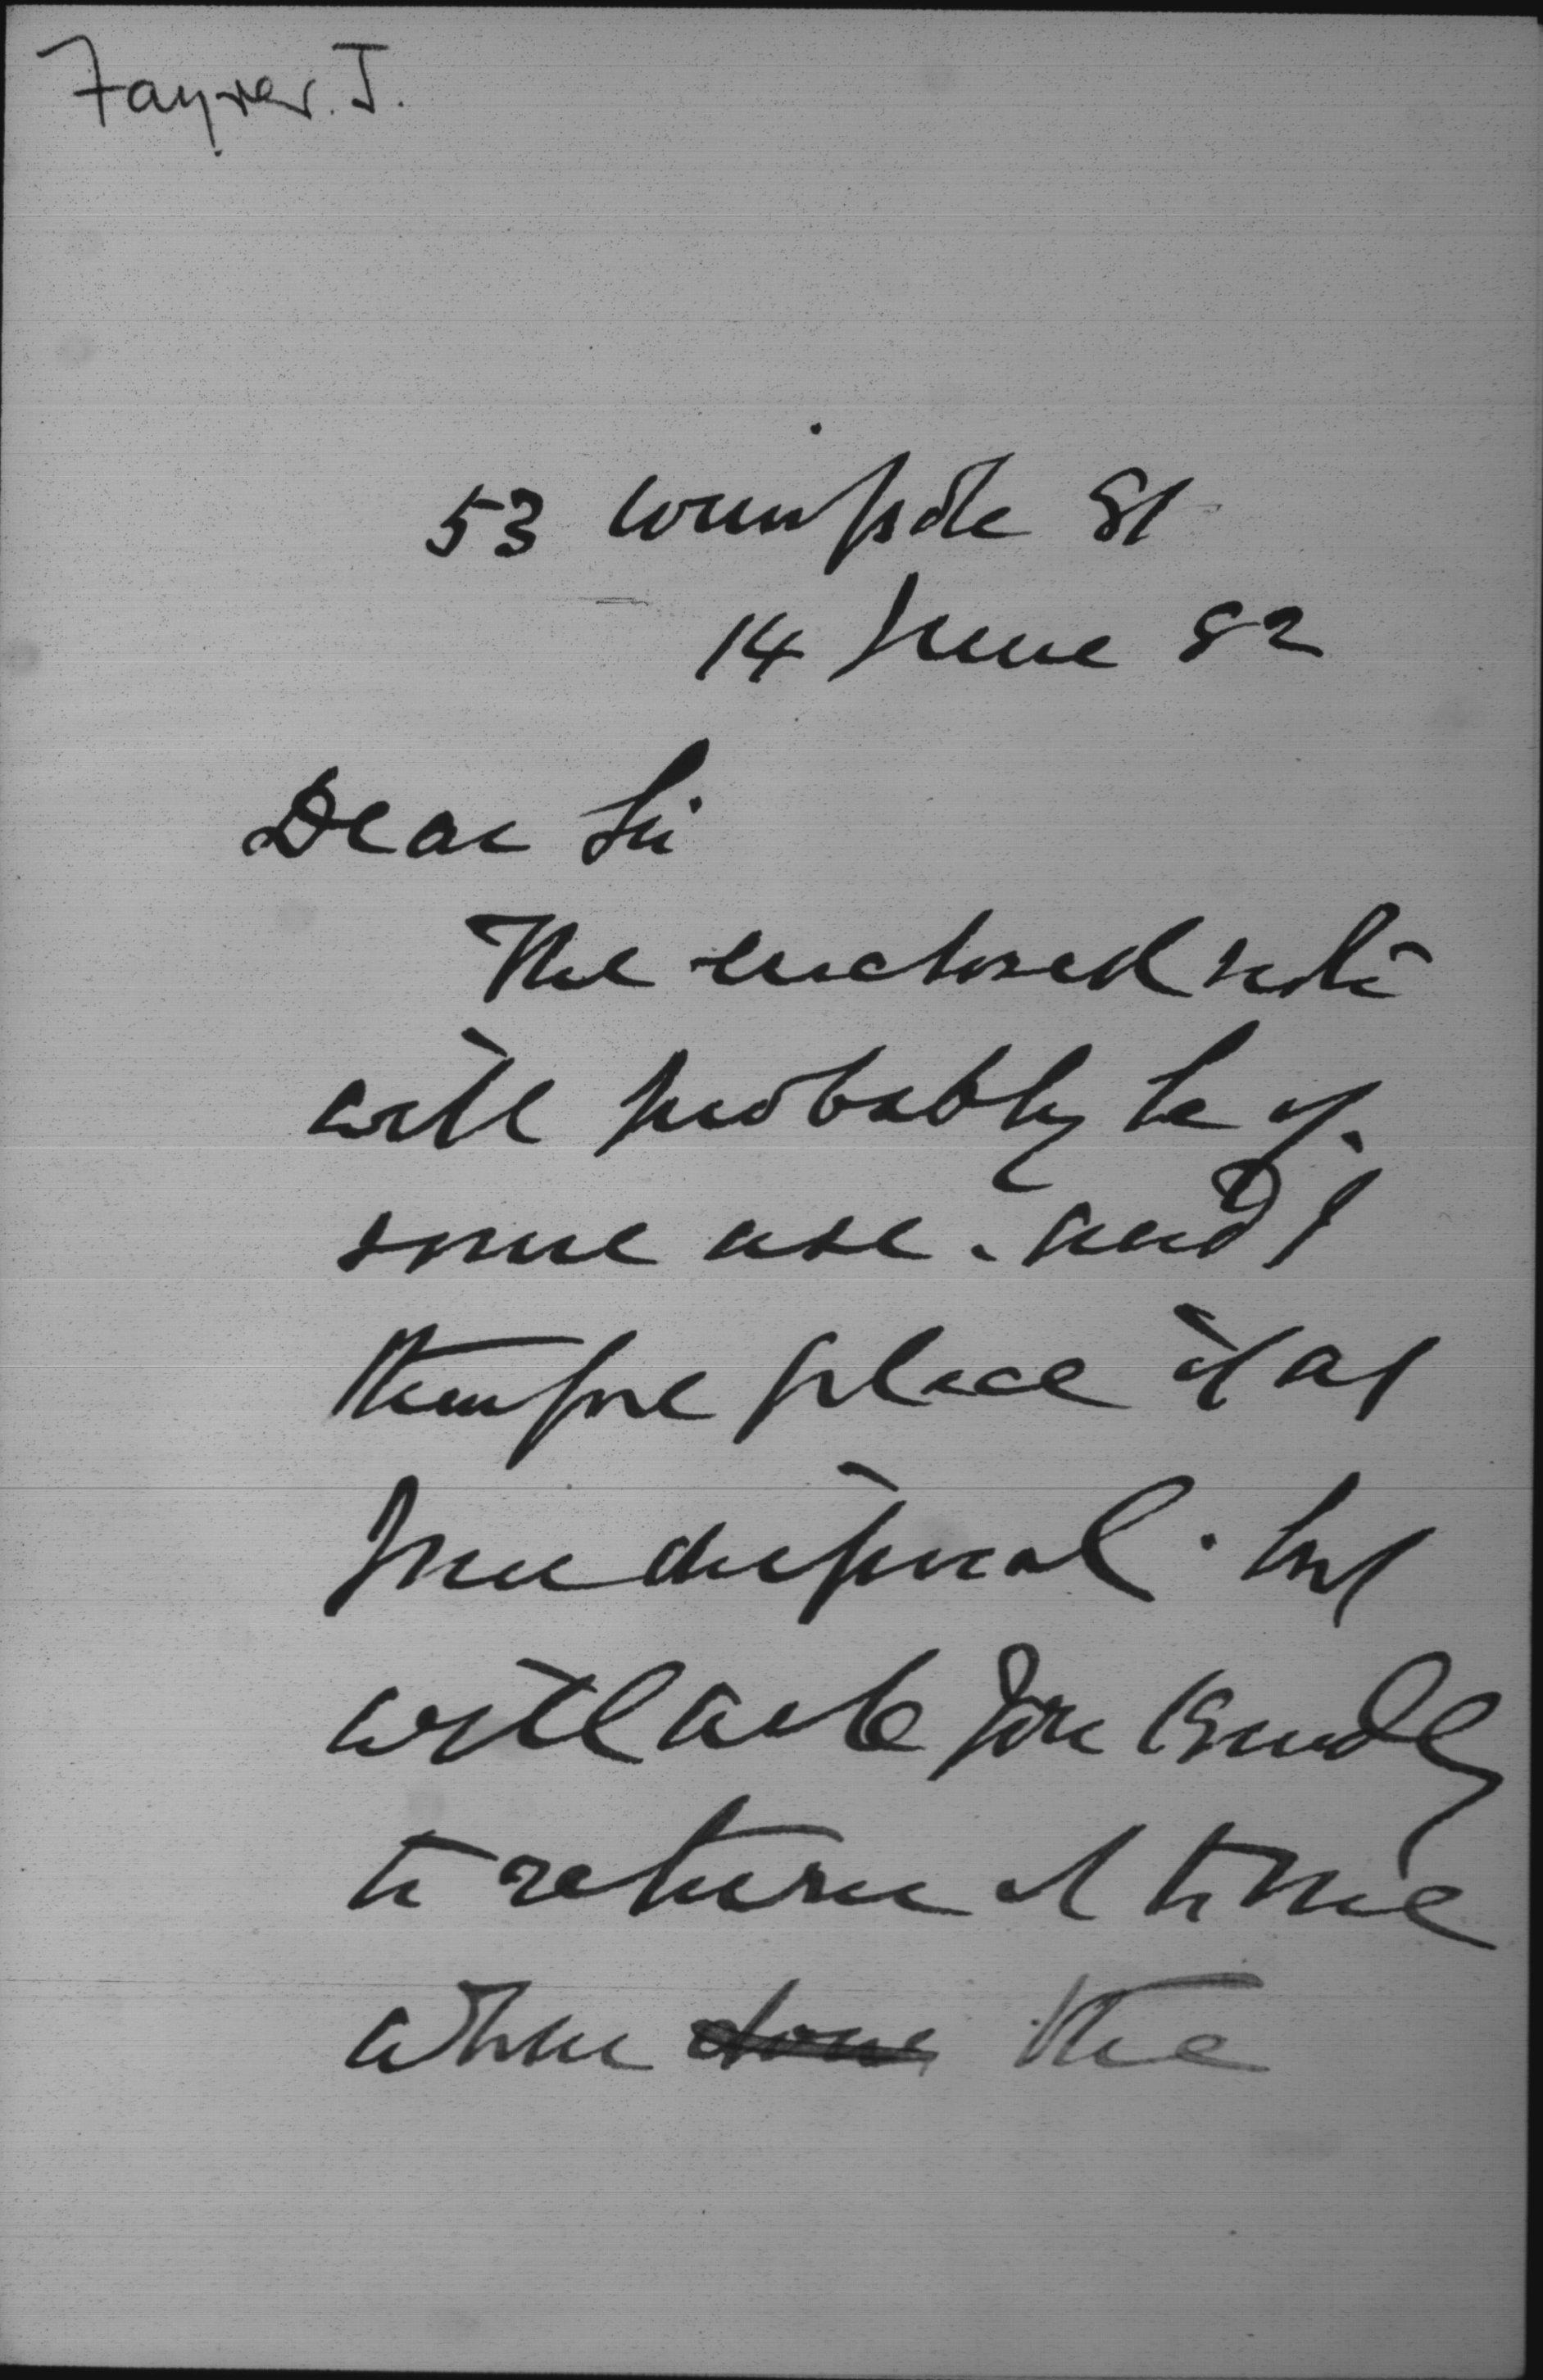 Fayrer. J.
53 Wimpole St
14 June 82
Dear Sir
The enclosed note
will probably be of
some use. and I
therefore place it at
your disposal. but
will ask you kindly
to return it to me
when done the